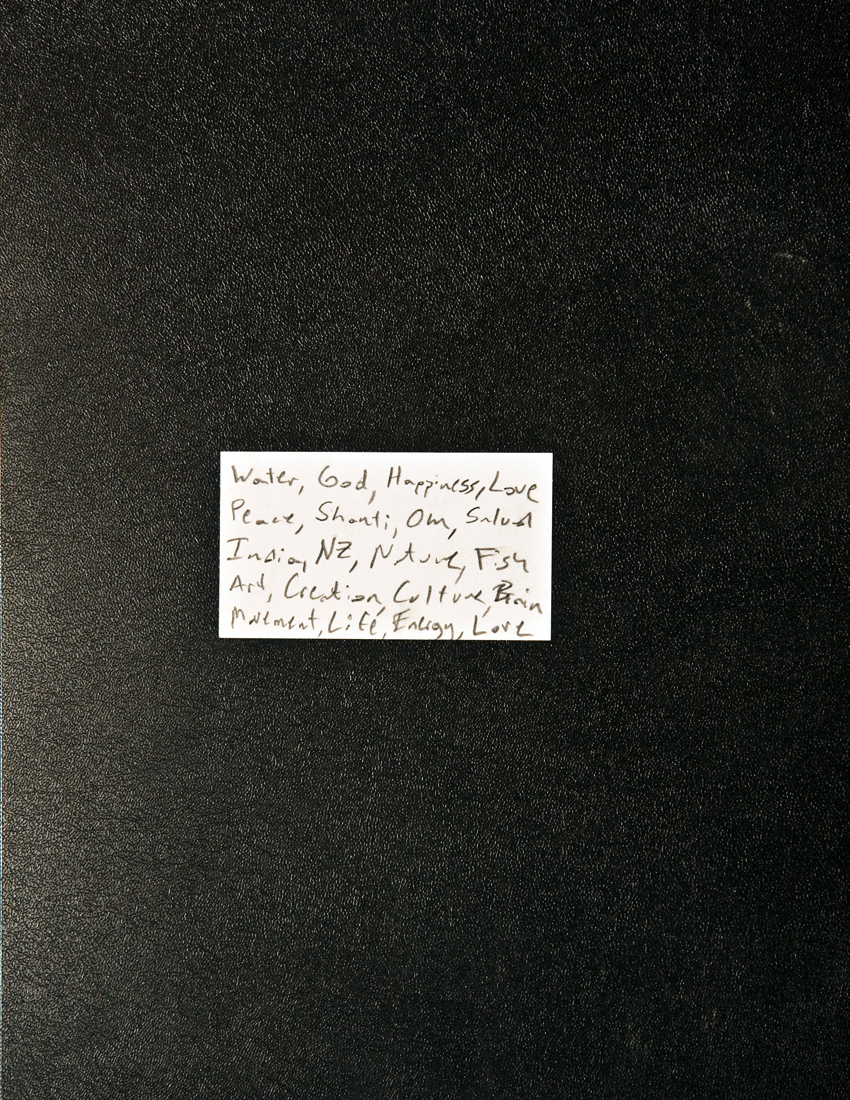 Water, God, Happiness, Love
Peace, Shanti, Om, Salud
India, NZ, Nature, Fish
Art, Creation, Culture, Brain
Movement, Life, Energy, Love